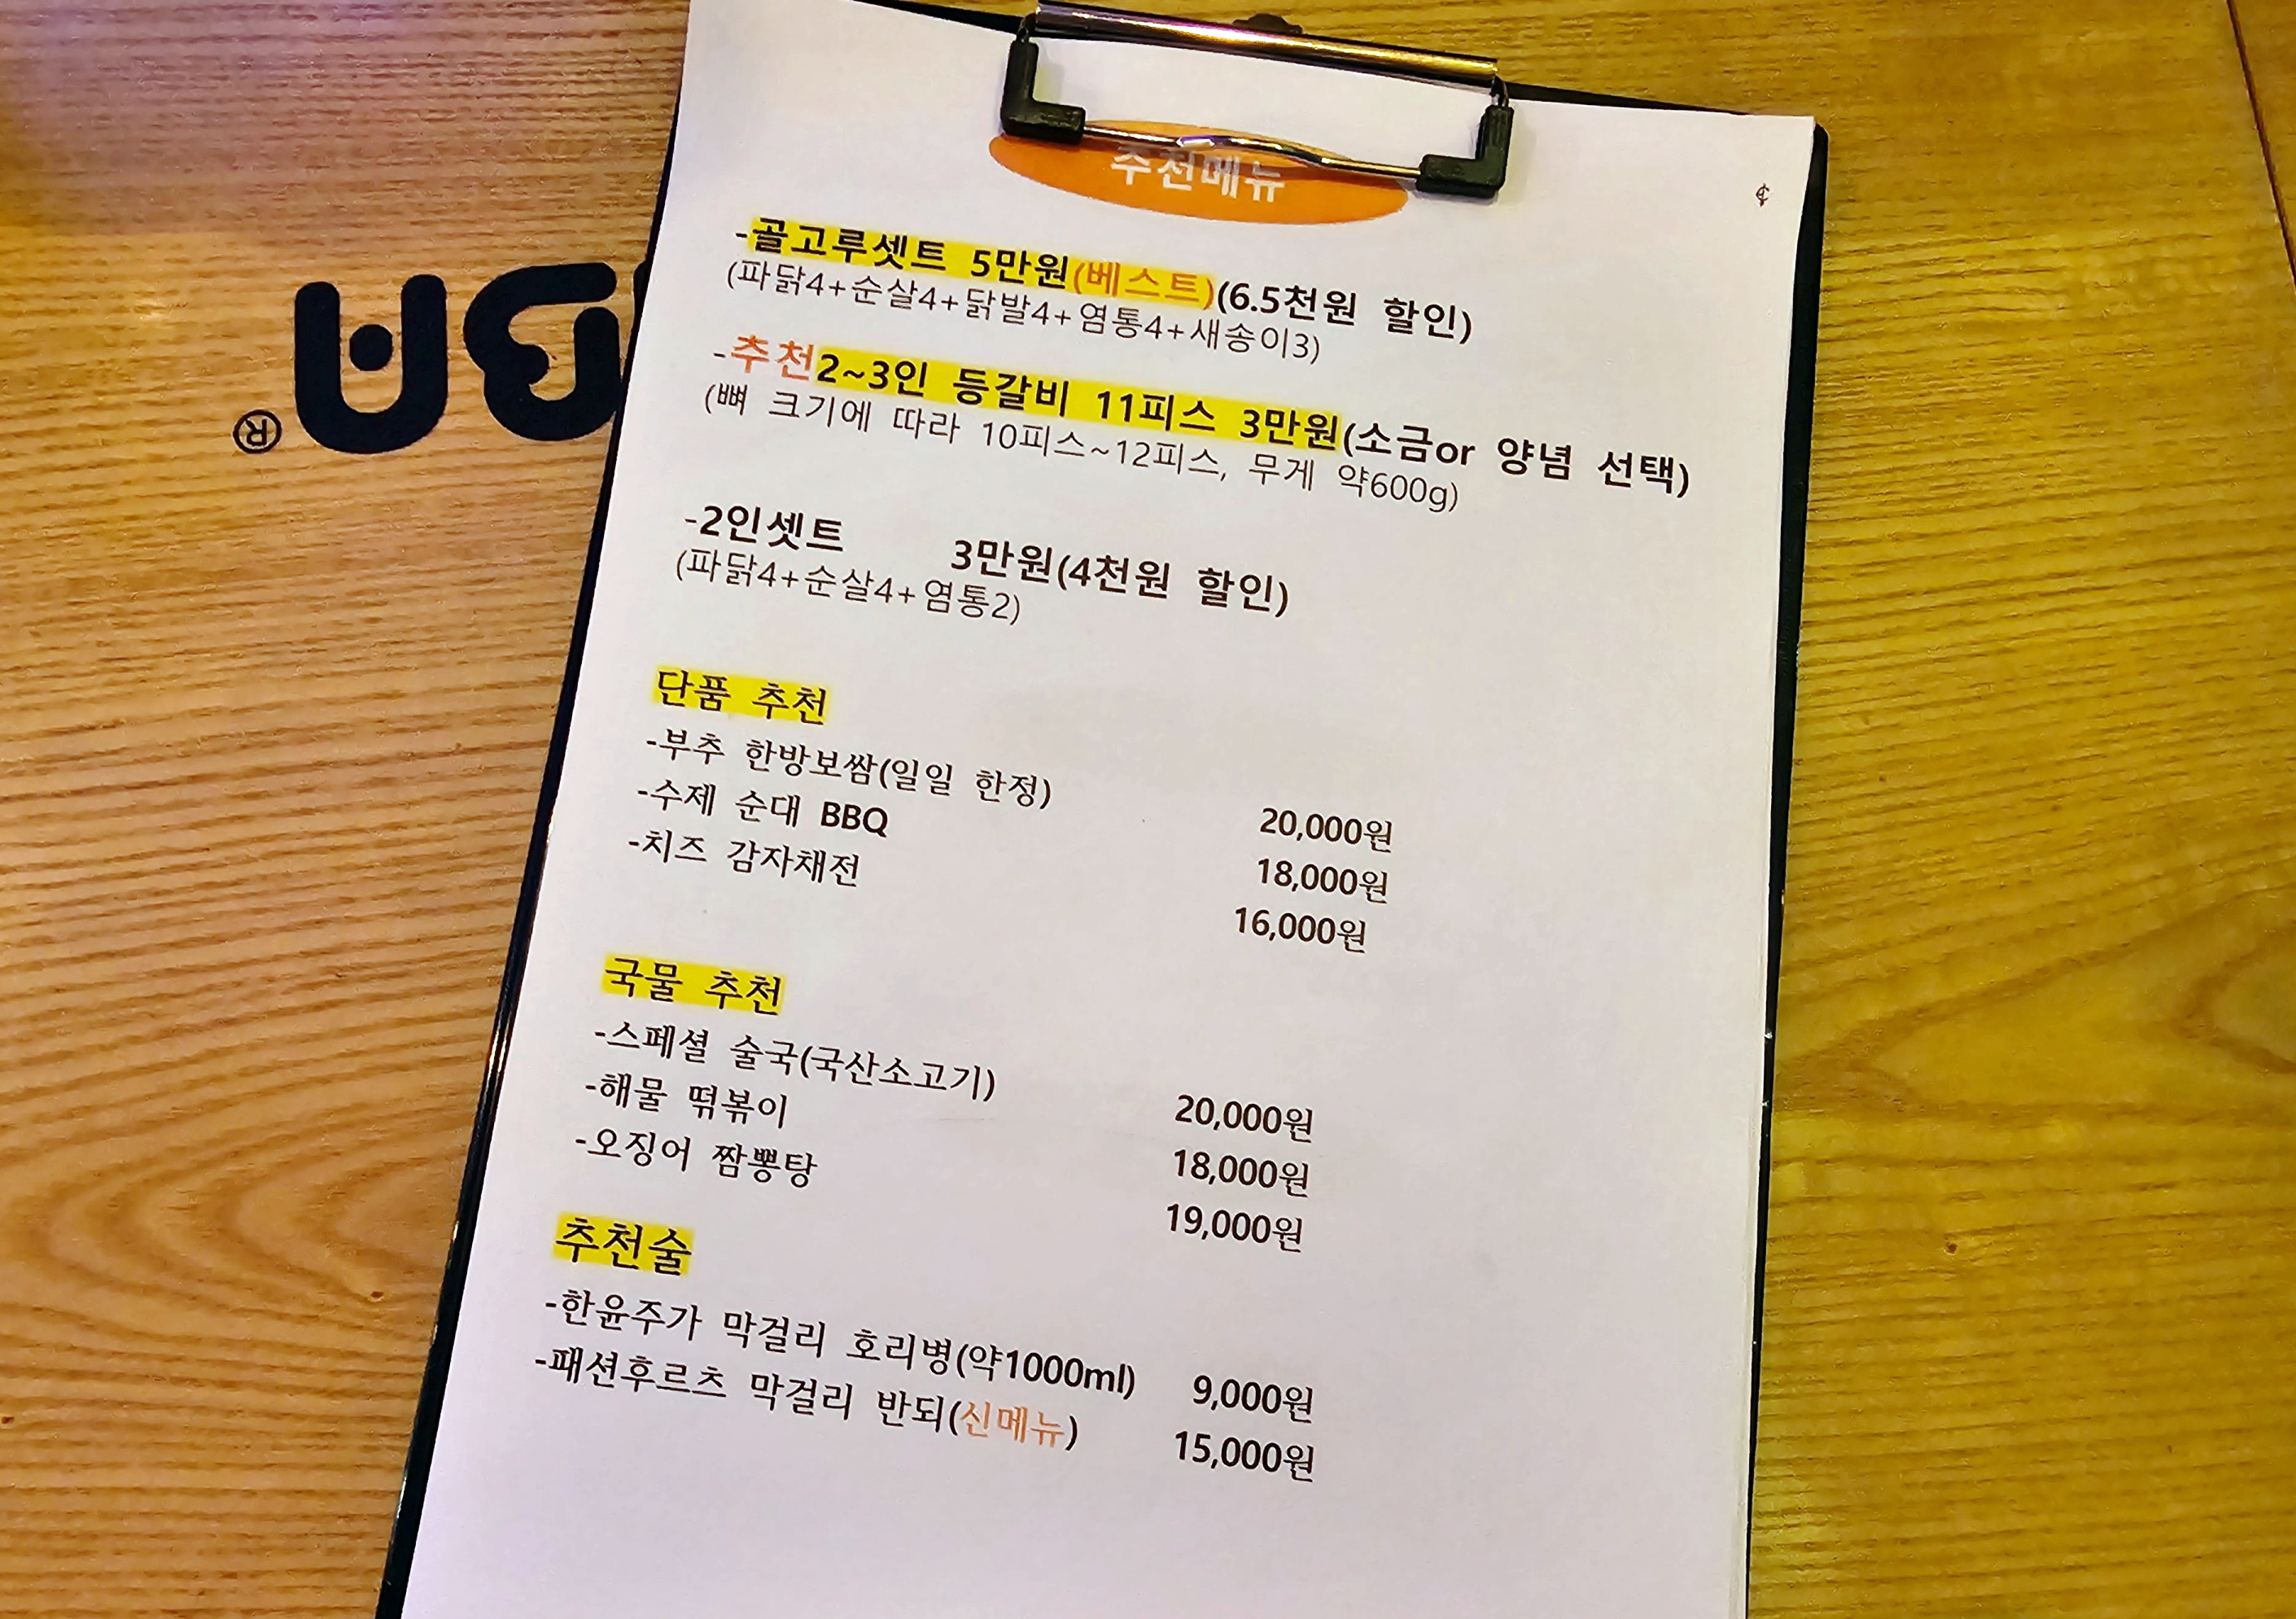 추천메뉴
-골고루셋트 5만원(베스트)(6.5천원 할인)
(파닭4+순살4+닭발4+염통4+새송이3)
-추천2~3인 등갈비 11피스 3만원(소금or 양념 선택)
(뼈 크기에 따라 10피스~12피스, 무게 약600g)
-2인셋트 3만원(4천원 할인)
(파닭4+순살4+염통2)
단품 추천
-부추 한방보쌈(일일 한정) 20,000원
-수제 순대 BBQ 18,000원
-치즈 감자채전 16,000원
국물 추천
-스페셜 술국(국산소고기) 20,000원
-해물 떡볶이 18,000원
-오징어 짬뽕탕 19,000원
추천술
-한윤주가 막걸리 호리병(약1000ml) 9,000원
-패션후르츠 막걸리 반되(신메뉴) 15,000원
®